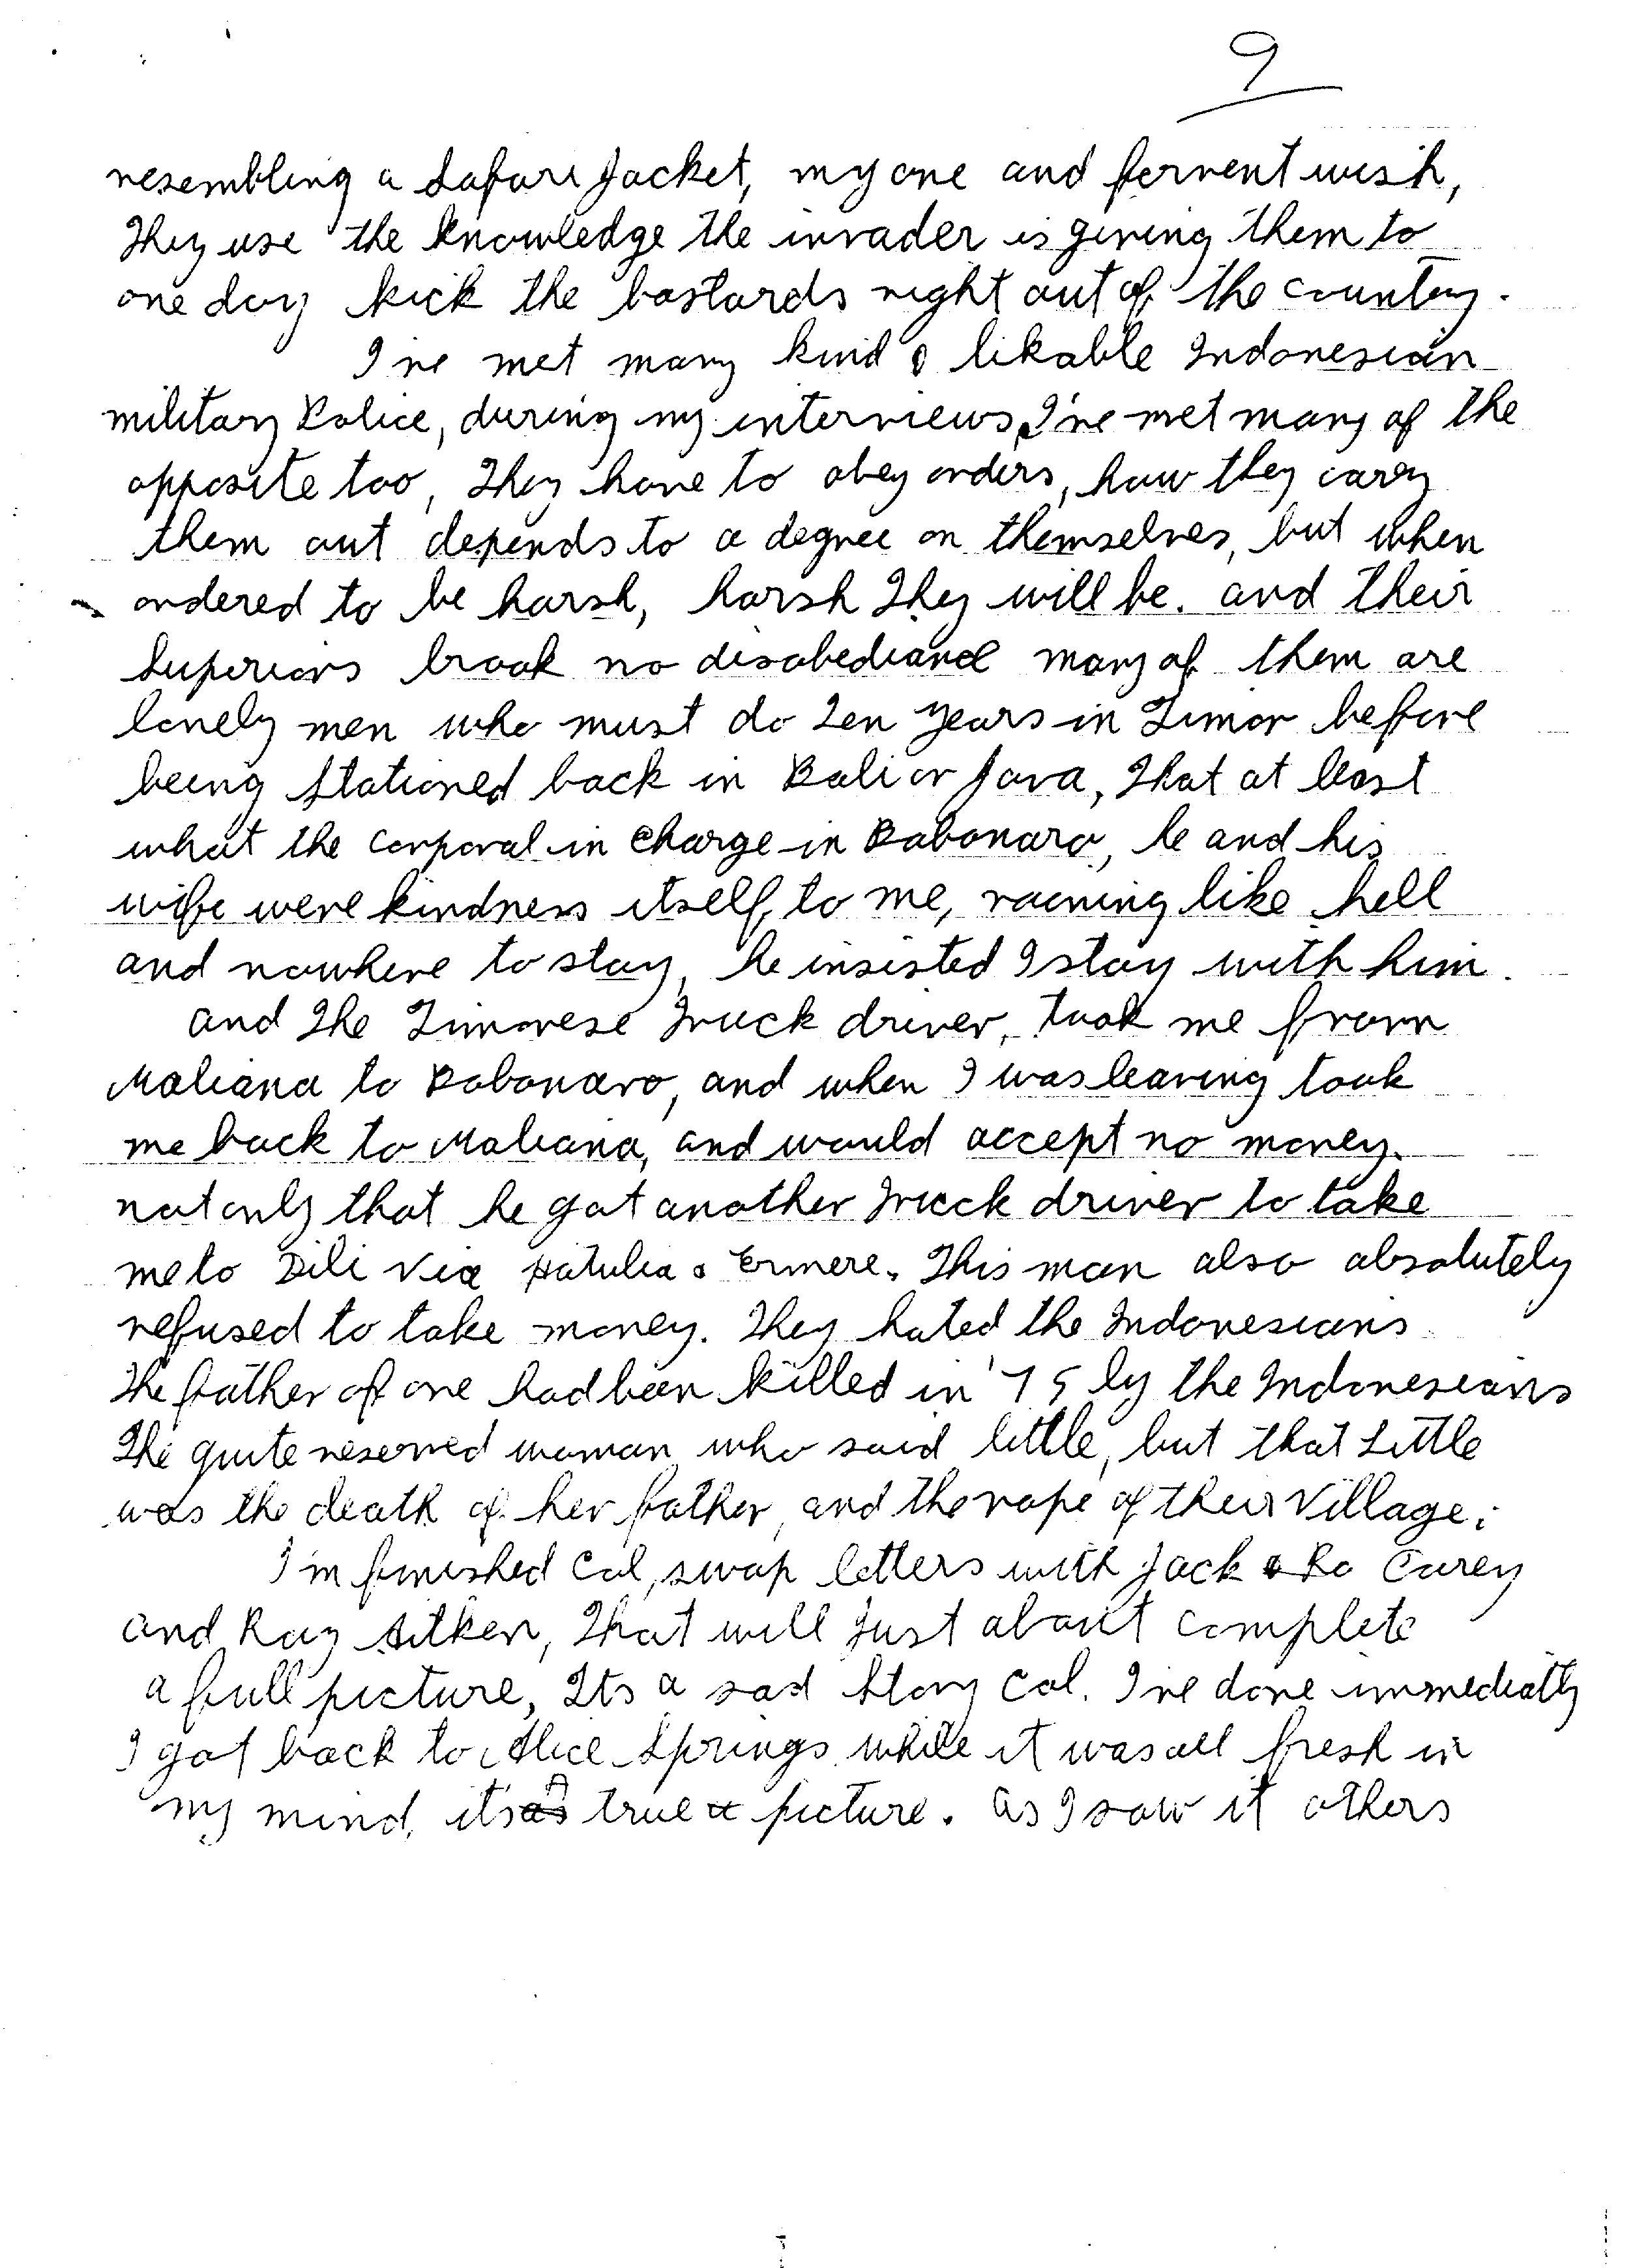 9
resembling a Safari Jacket, my one and fervent wish,
They use the knowledge the invader is giving them to
one day kick the bastards right out of the country.
I've met many kind & likable Indonesian
military Police, during my interviews, I've met many of the
opposite too, They have to obey orders, how they carry
them out depends to a degree on themselves, but when
ordered to be harsh, harsh They will be. and their
Superiors brook no disobediance many of them are
lonely men who must do ten years in Timor before
being Stationed back in Bali or Java, That at least
what the corporal in charge in Bobonaro, he and his
wife were kindness itself, to me, raining like hell
and nowhere to stay, he insisted I stay with him.
and The Timorese Truck driver, took me from
Maliana to Bobonaro, and when I was leaving took
me back to Maliana, and would accept no money.
not only that he got another Truck driver to take
me to Dili Via Hatulia & Ermere. This man also absolutely
refused to take money. They hated the Indonesians
The father of one had been killed in '75 by the Indonesians
The quite reserved woman who said little, but that Little
was the death of her father, and the rape of their Village.
I'm finished Col, swap letters with Jack & Ro Carey
and Ray Aitken, That will just about complete
a full picture, Its a sad Story Col. I've done immediatly
I got back to Alice Springs while it was all fresh in
my mind, its a true picture. as I saw it others